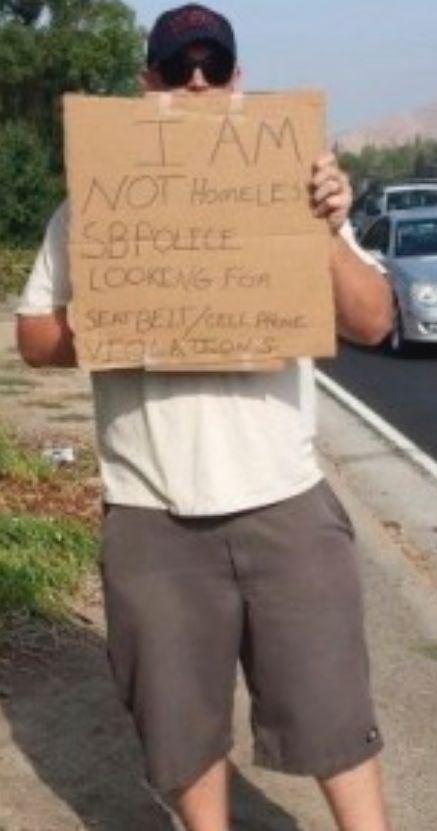 I AM
NOT HOMELESS
SBPOLICE
LOOKING FOR
SEATBELT/CELL PHONE
VIOLATIONS